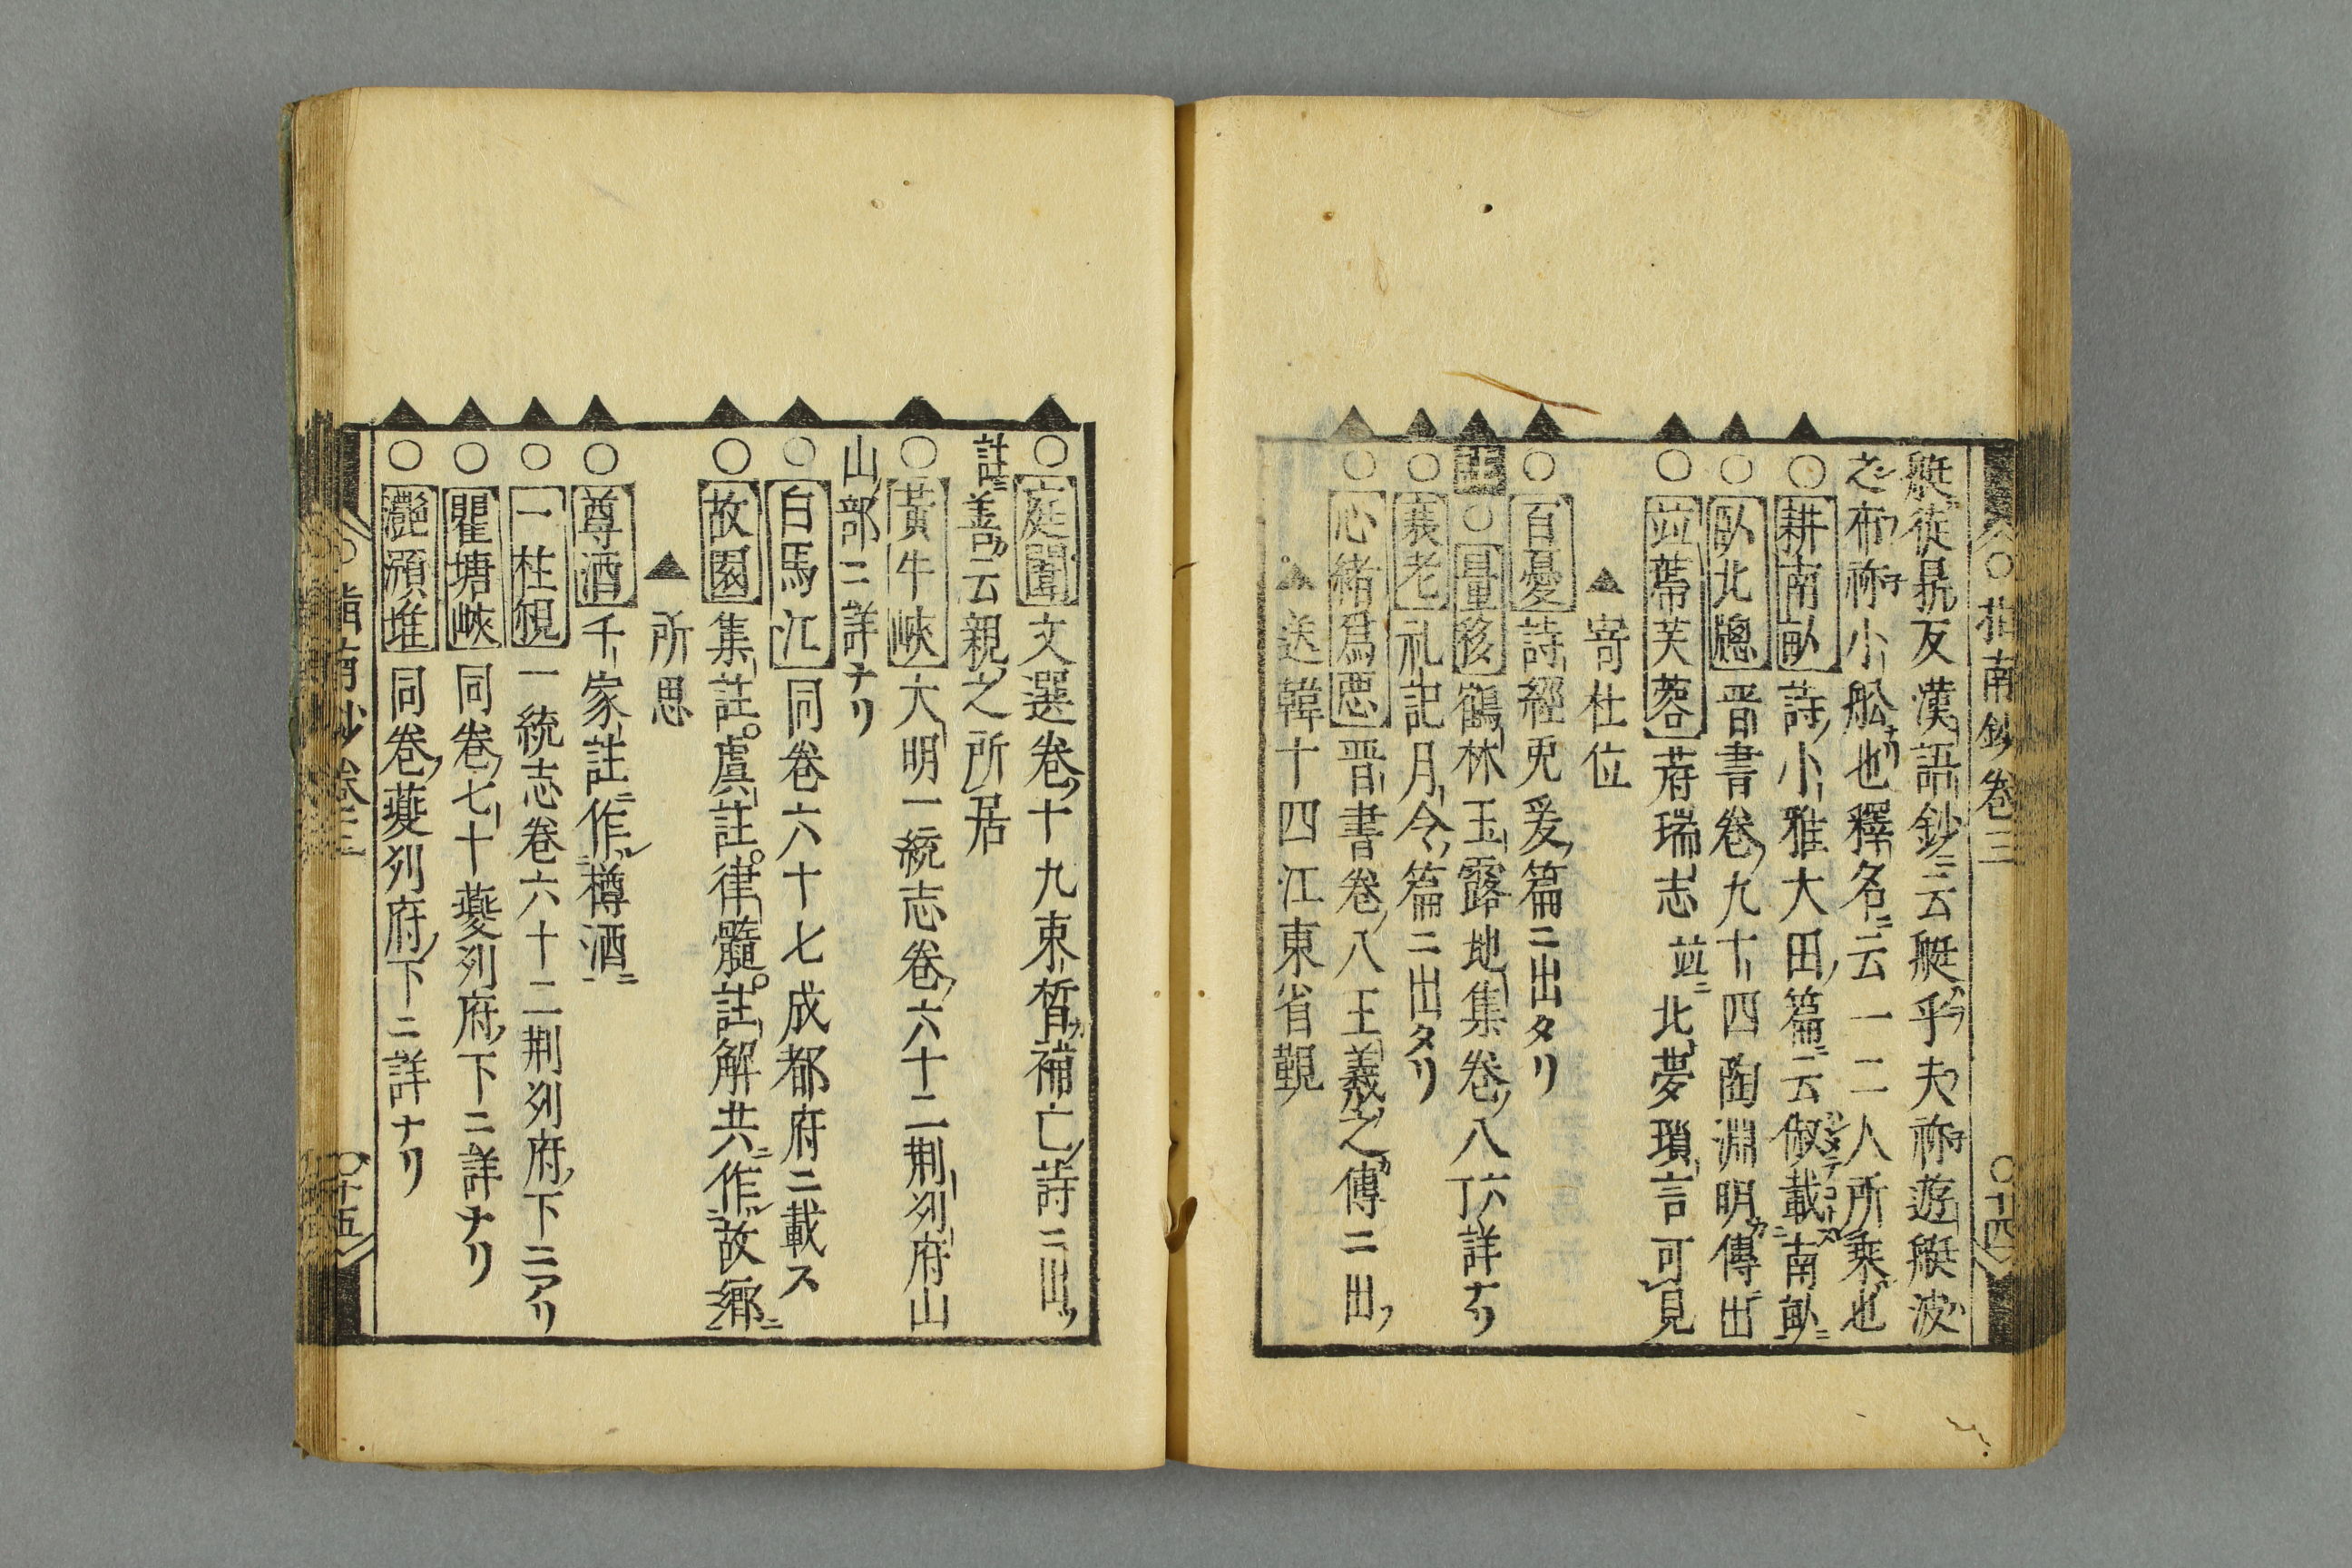 ○指南鈔卷三
○十四
艇徒鼎反漢語鈔ニ云艇乎夫祢遊艇波
之布祢小舩也釋名ニ云一二人所乘也
○耕南畝詩小雅大田篇ニ云俶載南畝
○臥北窻晋書卷九十四陶淵明傳出
○竝蔕芙蓉府瑞志竝ニ北夢瑣言可見
▲寄杜位
○百憂詩經兎爰篇ニ出タリ
註○量移鶴林玉露地集卷八六丁詳ナリ
○衰老礼記月令篇ニ出タリ
○心緒爲惡晋書卷八王義之傳ニ出
▲送韓十四江東省覲
○庭闈文選卷十九束皙補亡詩ニ出ツ
註ニ善云親之所居
○黃牛峽大明一統志卷六十二荆列府山
山部ニ詳ナリ
○白馬江同卷六十七成都府ニ載ス
○故園集註虞註律髓註解共ニ作故鄉ニ
▲所思
○尊酒千家註ニ作樽酒ニ
○一柱觀一統志卷六十二荆列府下ニアリ
○瞿塘峽同卷七十夔列府下ニ詳ナリ
○灧澦堆同卷夔列府下ニ詳ナリ
○指南鈔卷三
○十五